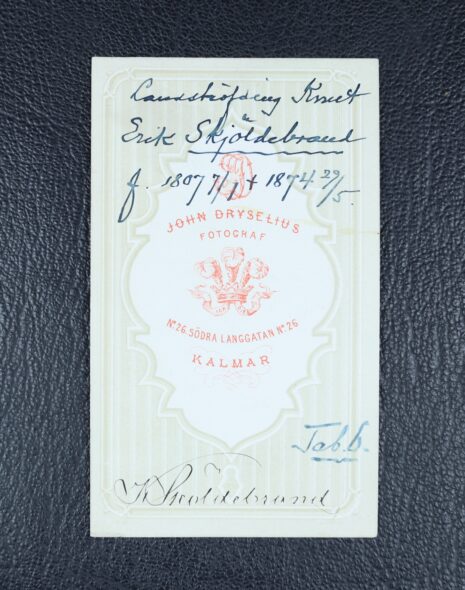 Landshöfding Knut
Erik Skjöldebrand
f. 1807 7/7 + 1874 29/5.
JD
JOHN DRYSELIUS
FOTOGRAF
No 26. SÖDRA LANGGATAN No 26
KALMAR
Tab. 6.
K Sköldebrand